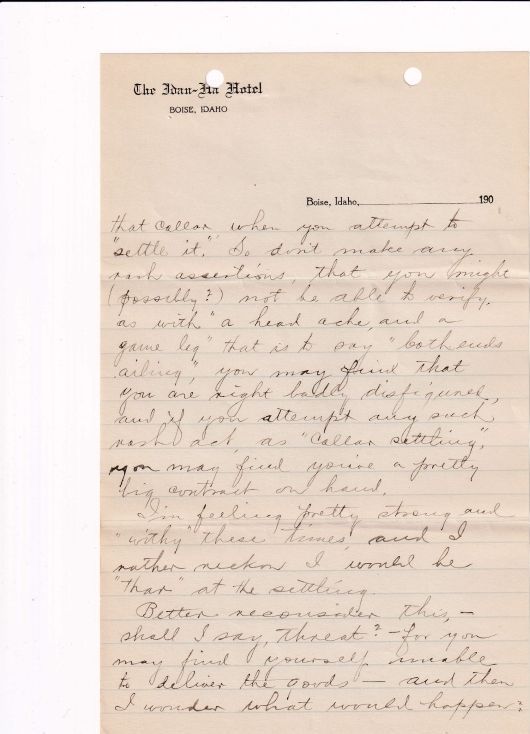 The Idan-Ha Hotel
BOISE, IDAHO
Boise, Idaho, 190
that collar when you attempt to
"settle it." So don't make any
rash assertions, that you might
(possibly?) not be able to verify.
as with "a head ache, and a
game leg" that is to say "both ends
ailing", you may find that
you are right badly disfigured,
and if you attempt any such
rash act, as "collar settling",
you may find you've a pretty
big contract on hand.
I'm feeling pretty strong and
"withy" these times, and I
rather reckon I would be
"thar" at the settling.
Better reconsider this, —
shall I say, threat? — for you
may find yourself unable
to deliver the goods — and then
I wonder what would happen?